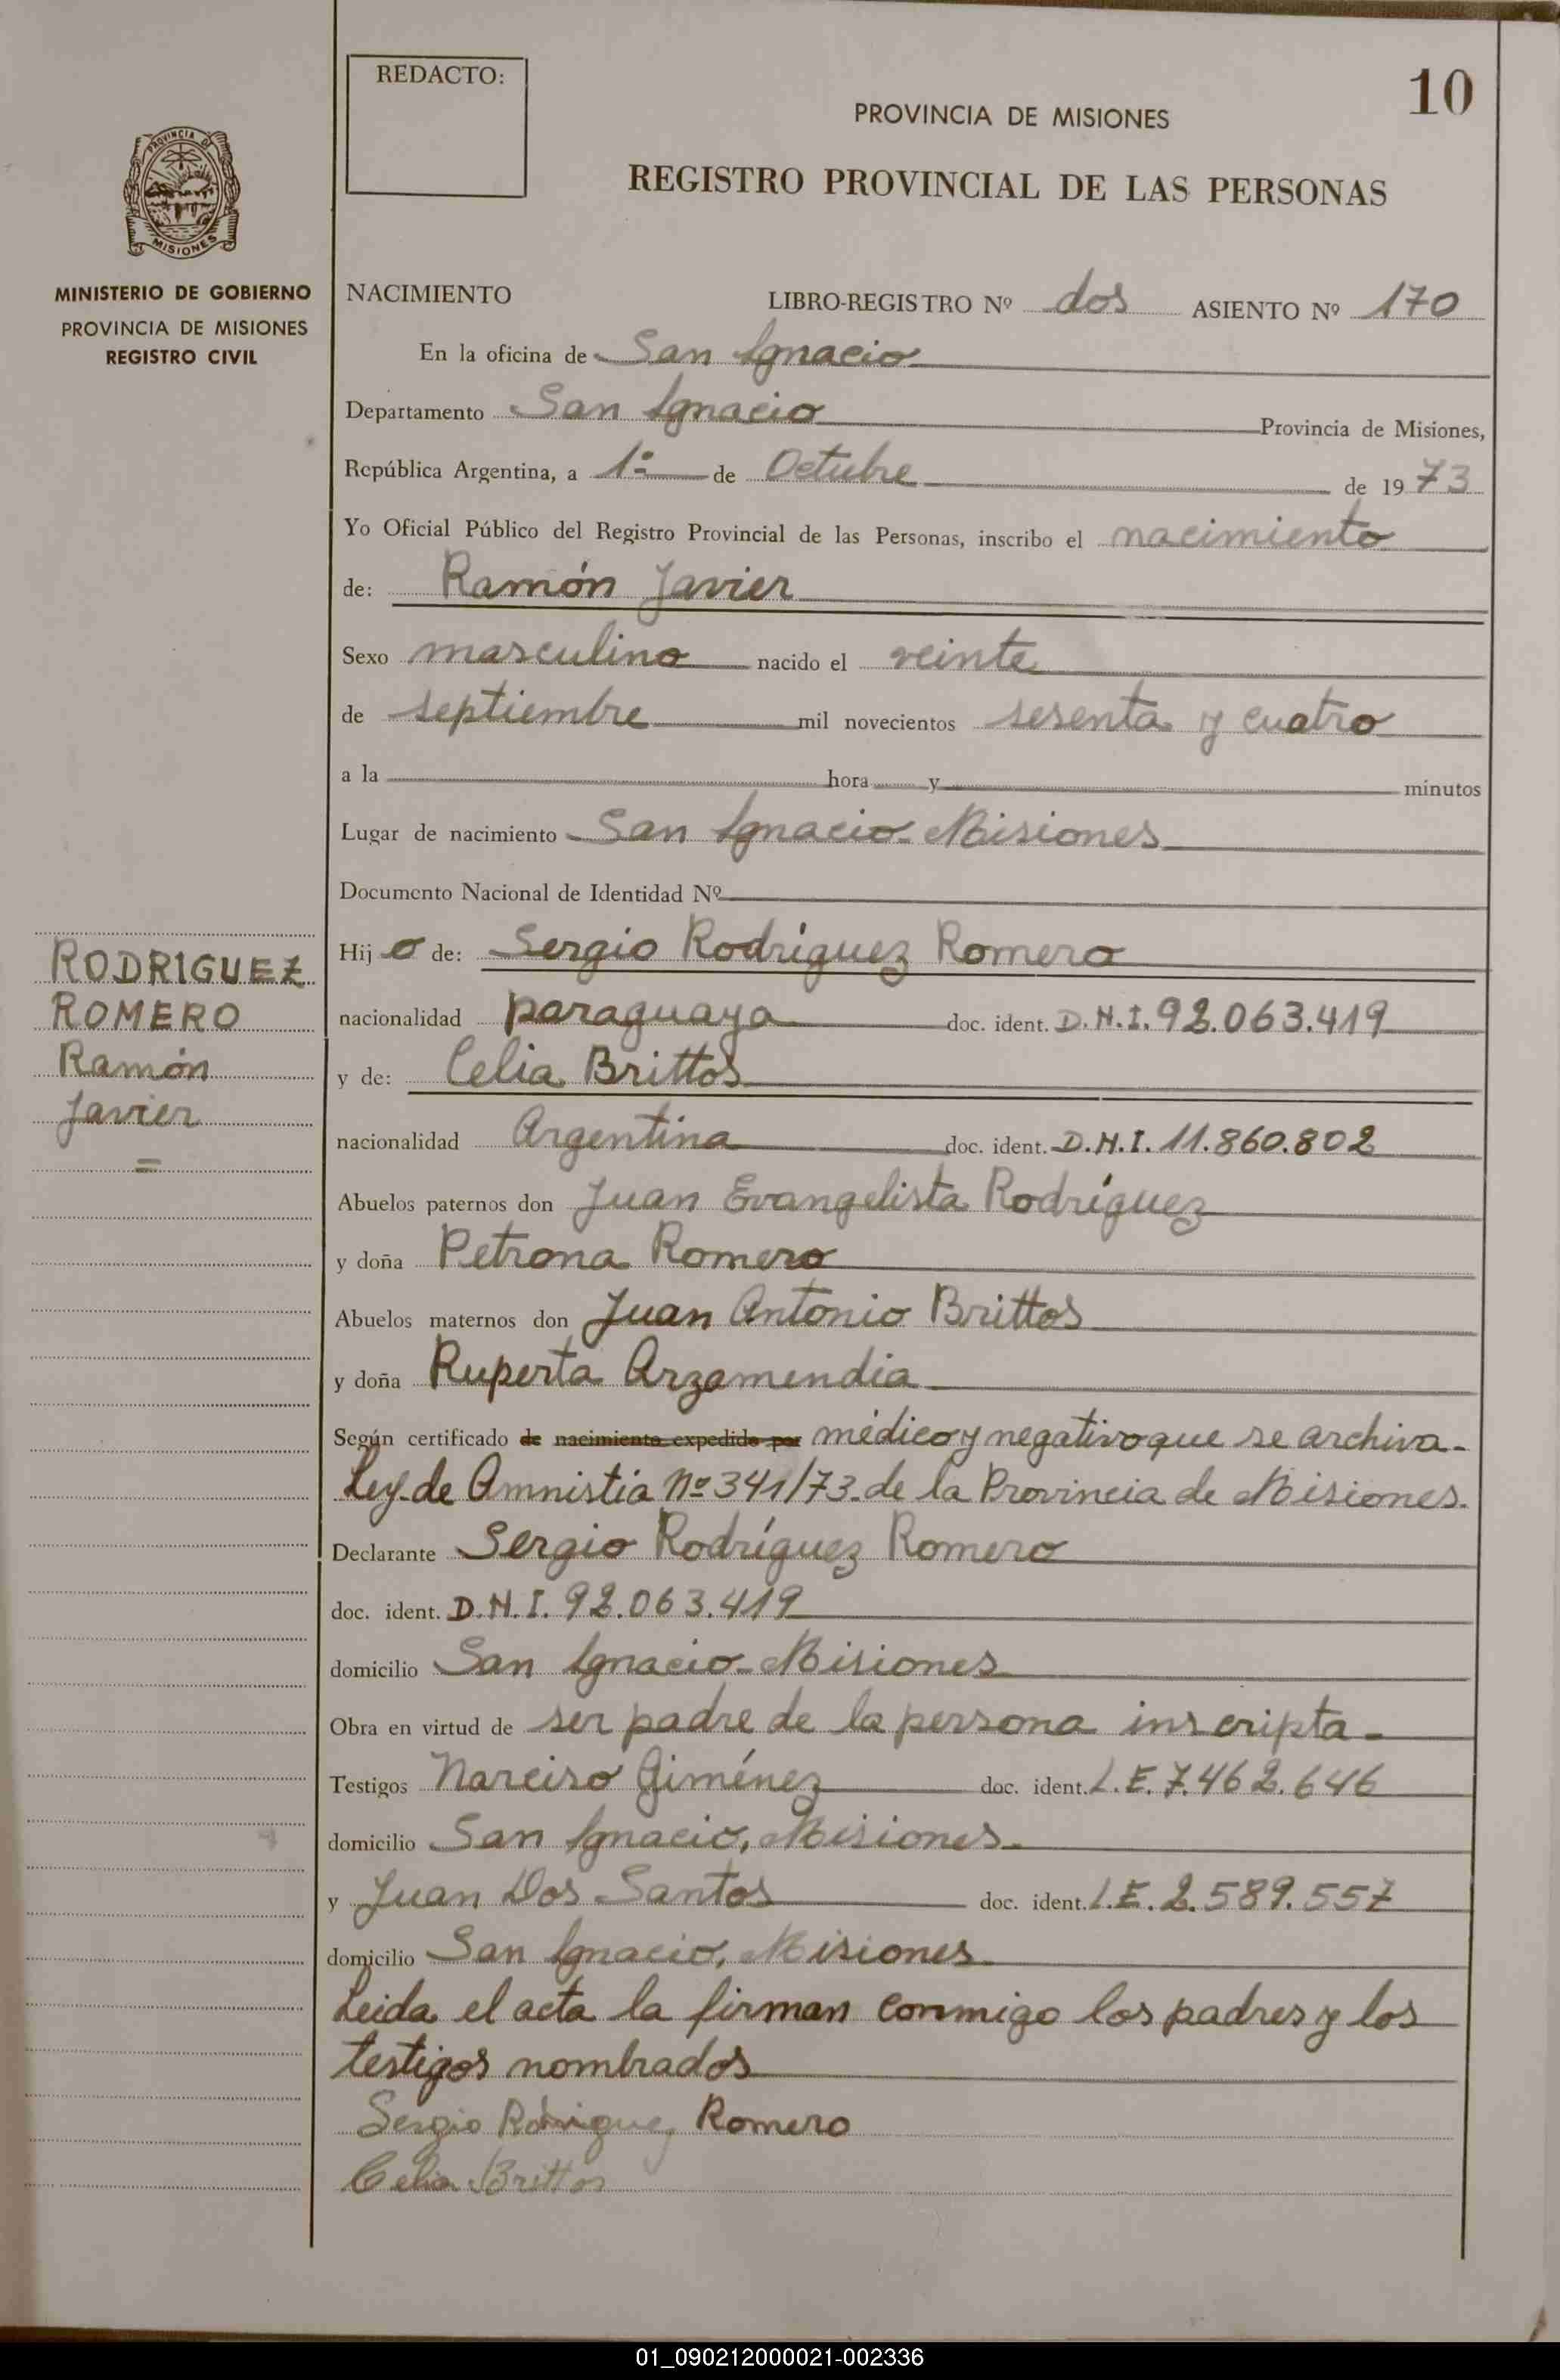 REDACTO:
10
PROVINCIA DE MISIONES
REGISTRO PROVINCIAL DE LAS PERSONAS
PROVINCIA D
MISIONES
MINISTERIO DE GOBIERNO
PROVINCIA DE MISIONES
REGISTRO CIVIL
NACIMIENTO LIBRO-REGISTRO Nº dos ASIENTO Nº 170
En la oficina de San Ignacio
Departamento San Ignacio Provincia de Misiones,
República Argentina, a 1º de Octubre de 1973
Yo Oficial Público del Registro Provincial de las Personas, inscribo el nacimiento
de: Ramón Javier
Sexo masculino nacido el veinte
de septiembre mil novecientos sesenta y cuatro
a la hora y minutos
Lugar de nacimiento San Ignacio- Misiones
Documento Nacional de Identidad Nº
RODRIGUEZ
ROMERO
Ramón
Javier
=
Hijo de: Sergio Rodríguez Romero
nacionalidad paraguaya doc. ident. D.N.I. 92.063.419
y de: Celia Brittos
nacionalidad Argentina doc. ident. D.N.I. 11.860.802
Abuelos paternos don Juan Evangelista Rodríguez
y doña Petrona Romero
Abuelos maternos don Juan Antonio Brittos
y doña Ruperta Arzamendia
Según certificado de nacimiento expedido por médico y negativo que se archiva-
Ley de Amnistia Nº 341/73. de la Provincia de Misiones.
Declarante Sergio Rodríguez Romero
doc. ident. D.N.I. 92.063.419
domicilio San Ignacio- Misiones
Obra en virtud de ser padre de la persona inscripta-
Testigos Narciso Giménez doc. ident. L.E. 7.462.646
domicilio San Ignacio, Misiones.
y Juan Dos Santos doc. ident. L.E. 2.589.557
domicilio San Ignacio, Misiones
Leida el acta la firman conmigo los padres y los
testigos nombrados
Sergio Rodriguez Romero
Celia Brittos
01_090212000021-002336